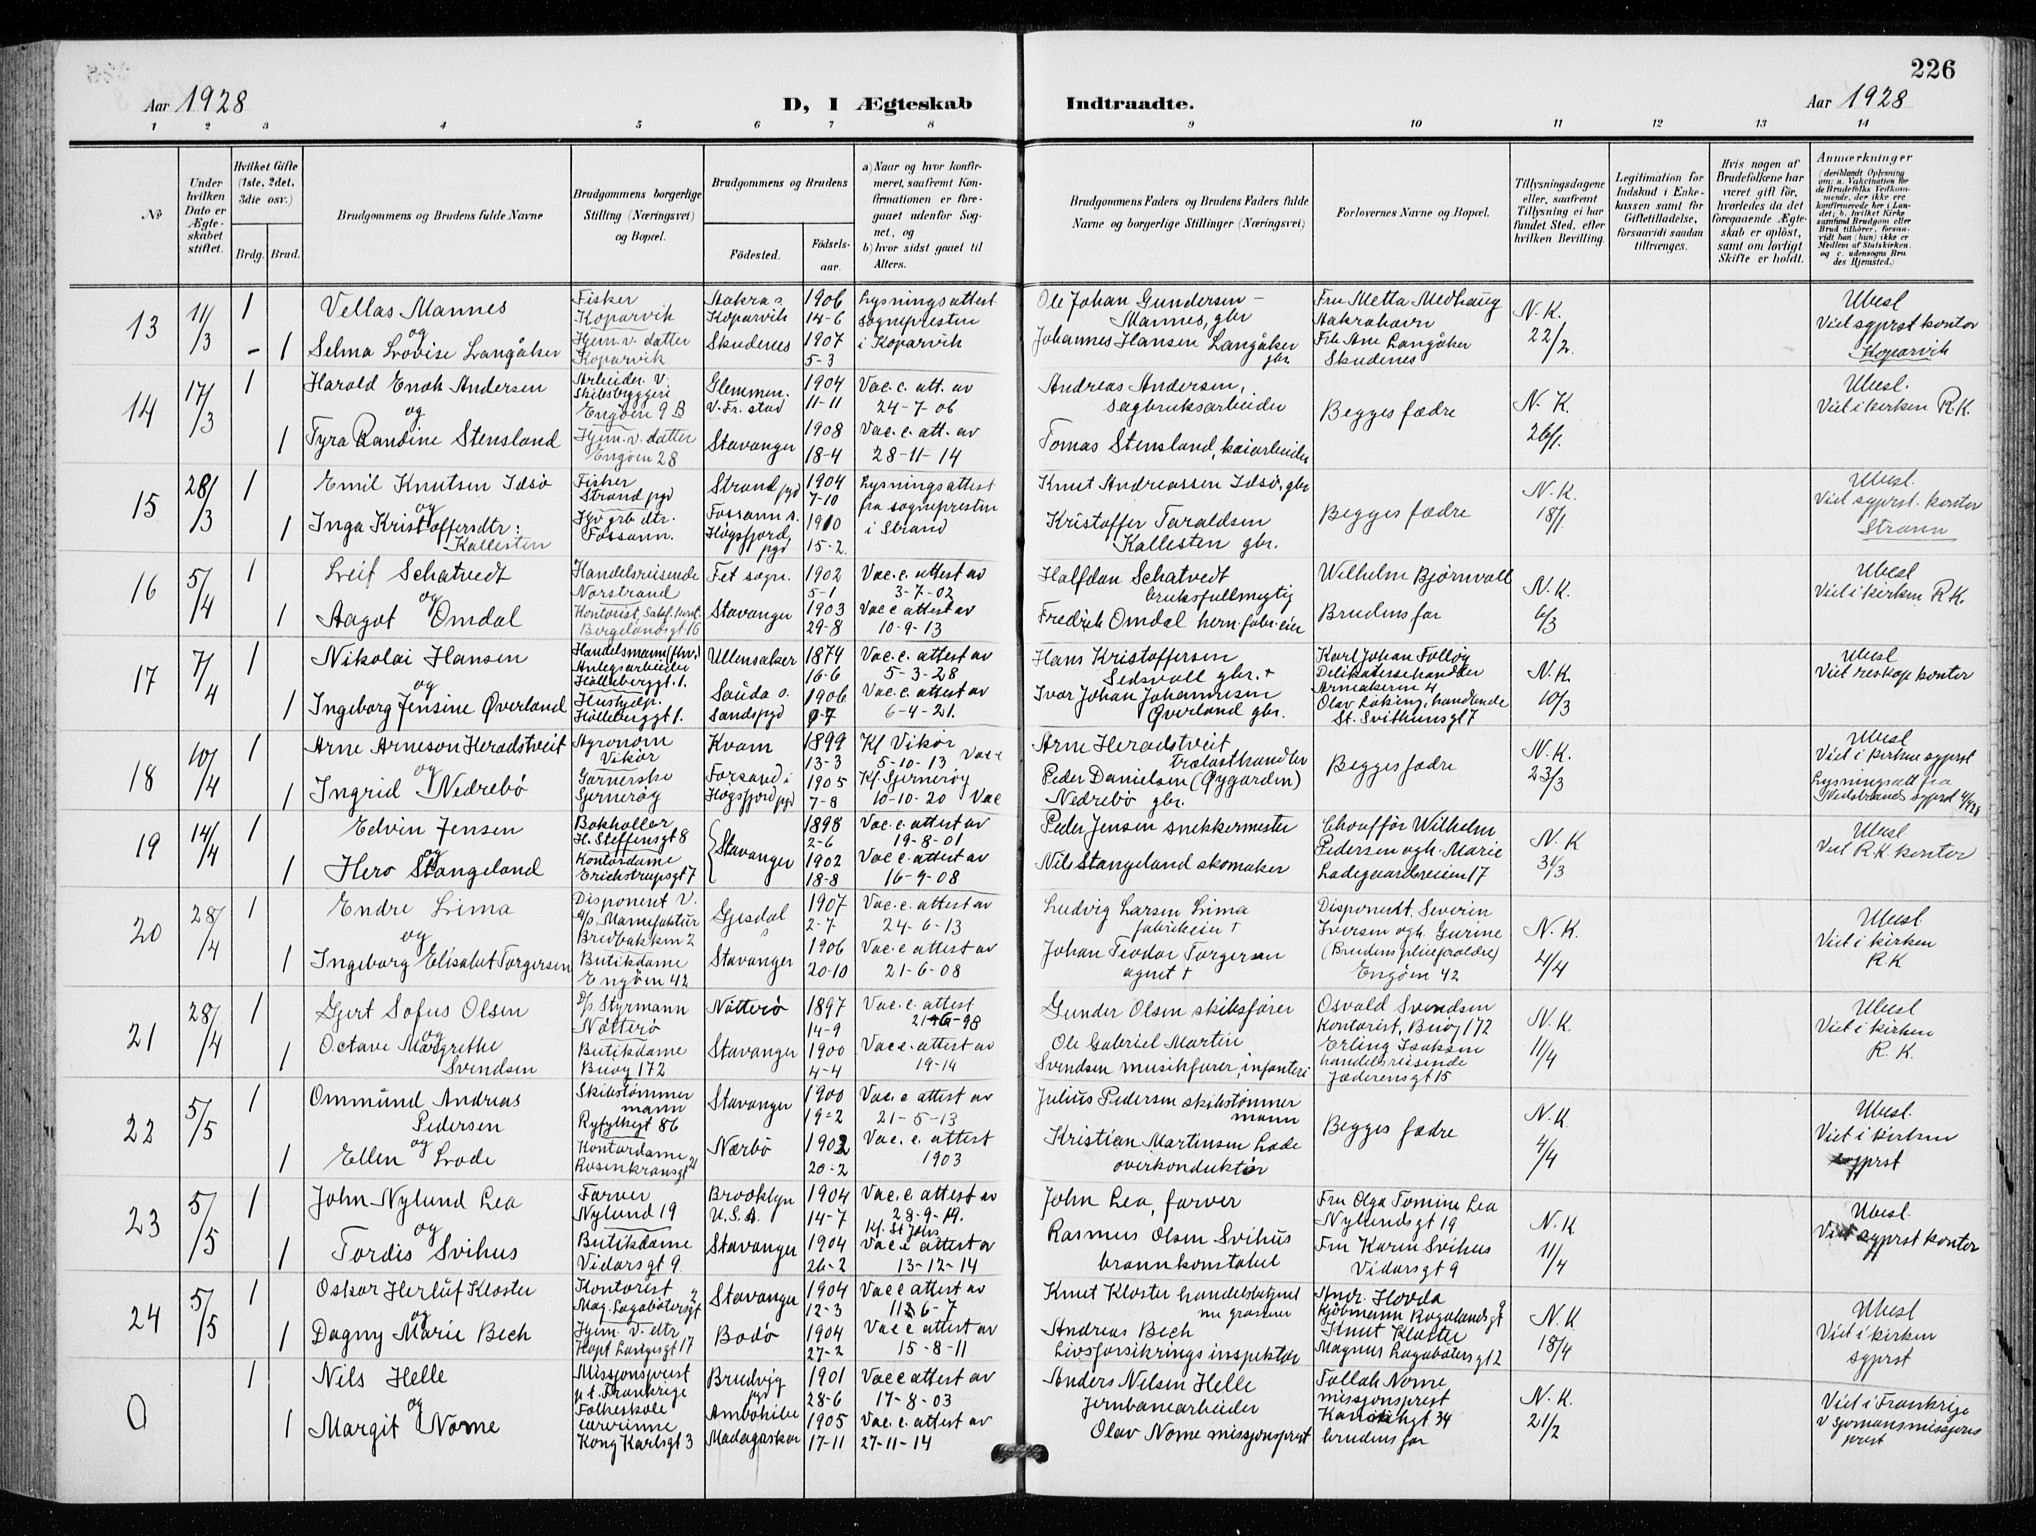 226
Aar 1928
D, I Ægteskab
Indtraadte.
Aar 1928
1 2 3 4 5 6 7 8 9 10 11 12 13 14
No
Under hvilken Dato er Ægteskabet stiftet.
Hvilket Gifte (1ste, 2det, 3die osv.)
Brdg. Brud.
Brudgommens og Brudens fulde Navne
Brudgommens borgerlige Stilling (Næringsvei) og Bopæl.
Brudgommens og Brudens
Fødested.
Fødselsaar.
a) Naar og hvor konfirmeret, saafremt Konfirmationen er foregaaet udenfor Sognet, og
b) hvor sidst gaaet til Alters.
Brudgommens Faders og Brudens Faders fulde Navne og borgerlige Stillinger (Næringsvei)
Forlovernes Navne og Bopæl.
Tillysningsdagene eller, saafremt Tillysning ei har fundet Sted, efter hvilken Bevilling.
Legitimation for Indskud i Enkekassen samt for Giftetilladelse, forsaavidt saadan tiltrænges.
Hvis nogen af Brudefolkene har været gift før, hvorledes da det foregaaende Ægteskab er opløst, samt om lovligt Skifte er holdt.
Anmærkninger (deriblandt Oplysning om: a. Vakcination for de Brudefolks Vedkommende, der ikke ere konfirmerede her i Landet; b. hvilket Kirkesamfund Brudgom eller Brud tilhører, forsaavidt han (hun) ikke er Medlem af Statskirken, og c. udensogns Brudes Hjemsted.)
13
11/3
1
Vellas Mannes
og
1
Selma Lovise Langåker
Fisker
Kopervik
Hjem. v. datter
Kopervik
Aakra s.
Kopervik
Skudenes
1906
14-6
1907
5-3
Lysningsattest
sognepresten
i Kopervik
Ole Johan Gundersen -
Mannes, gbr
Johannes Hansen Langåker
gbr
Fru Metta Medhaug
Aakrahavn
Frk Ane Langåker
Skudenes
N. K.
22/2.
Ubesl
Viet sgprst kontor
Kopervik
14
17/3
1
Harald Enok Andersen
og
1
Tyra Randine Stensland
Arbeider v.
Skibsbyggeri
Engøen 9 B
Hjem. v. datter
Engøen 28
Glemmen.
v. Fr. stad
Stavanger
1904
11-11
1908
18-4
Vac. c. att. av
24-7-06
Vac. c. att. av
28-11-14
Andreas Andersen,
sagbruksarbeider
Tomas Stensland, kaiarbeider
Begges fædre
N. K.
26/1.
Ubesl.
Viet i kirken R.K.
15
28/3
1
Emil Knutsen Idsø
og
1
Inga Kristoffersdtr:
Kallesten
Fisker
Strand pgd
Hjv grb dtr.
Fossann.
Strand pgd
Fossann s.
Høgsfjord
pgd
1904
7-10
1910
15-2
Lysningsattest
fra sognepresten
i Strand
Knut Andreassen Idsø, gbr
Kristoffer Taraldsen
Kallesten gbr.
Begges fædre
N. K.
18/1.
Ubesl.
Viet sgprst. kontor
Strann
16
5/4
1
Leif Schatvedt
og
1
Aagot Omdal
Handelsreisende
Norstrand
Bergelandsgt 16
Fet sogn.
Stavanger
1902
5-1
1903
29-8
Vac. c. attest av
3-7-02
Vac c attest av
10-9-13
Halfdan Schatvedt
bruksfullmegtig
Fredrik Omdal herm.fabr.eier
Wilhelm Bjørnvoll
Brudens far
N. K.
6/3
Ubesl
Viet i kirken R.K.
17
7/4
1
Nikolai Hansen
og
1
Ingeborg Jensine Øverland
Handelsmann (fhv.)
Anlegsarbeider
Holleberggt. 1.
Hushjelp.
Holleberggt 1.
Ullensaker
Sauda s.
Sandspgd
1874
16-6
1906
9-7
Vac. c. attest av
5-3-28
Vac. c. attest av
6-4-21.
Hans Kristoffersen
Sedsvoll gbr. +
Ivar Johan Johannesen
Øverland gbr.
Karl Johan Folløy
Delikatessehandler
Arneakeren 4
Olav Løking, handlende
St. Svithunsgt 7
N. K.
10/3
Ubesl
Viet reskap kontor
18
10/4
1
Arne Arneson Heradstveit
og
1
Ingrid Nedrebø
Agronom
Vikør
Garnerske
Sjernerøy
Kvam
Forsand i
Høgsfjord pgd
1899
13-3
1905
7-8
Kf. Vikør
5-10-13 Vac
Kf. Sjernerøy
10-10-20 Vac
Arne Heradstveit
trælasthandler
Peder Danielsen (Øygarden)
Nedrebø gbr.
Begges fædre
N. K.
23/3
Ubesl
Viet i kirken sgprst
Lysningsatt fra
19
14/4
1
Edvin Jensen
og
1
Hero Stangeland
Bokholler
H. Steffensgt 8
Kontordame
Erichstrupsgt 7
Stavanger
1898
2-6
1902
18-8
Vac. c. attest av
19-8-01
Vac c. attest av
16-9-08
Peder Jensen snekkermester
Nils Stangeland skomaker
Chouffør Wilhelm
Pedersen og h. Marie
Ladegaardsveien 17
N. K
31/3
Ubesl
Viet R.K. kontor
20
28/4
1
Endre Lima
og
1
Ingeborg Elisabet Torgersen
Disponent v.
A/s. Manufaktur
Bredbakken 2
Butikdame
Engøen 42
Gjesdal
Stavanger
1907
2-7
1906
20-10
Vac. c. attest av
24-6-13
Vac. c attest av
21-6-08
Ludvig Larsen Lima
fabrikeier +
Johan Teodor Torgersen
agent +
Disponent Severin
Iversen og h. Gurine
(Brudens pleieforældre)
Engøen 42
N. K.
4/4
Ubesl.
Viet i kirken
R K
21
28/4
1
Gjert Sofus Olsen
og
1
Octave Margrethe
Svendsen
Styrmann
Nøtterø
Butikdame
Buøy 172
Nøtterø
Stavanger
1897
14-9
1900
4-4
Vac. c. attest
21-6-98
Vac c. attest av
19-14
Gunder Olsen skibsfører
Ole Gabriel Martin
Svendsen musikfurer, infanteri
Osvald Svendsen
Kontorist, Buøy 172
Erling Isaksen
handelsreisende
Jæderensgt 15
N. K.
11/4
Ubesl
Viet i kirken
R. K.
22
5/5
1
Ommund Andreas
Pedersen
og
1
Ellen Lode
Skibstømmer
mann
Ryfylkegt 86
Kontordame
Rosenkransgt 21
Stavanger
Nærbø
1900
19-2
1902
20-2
Vac. c attest av
21-5-13
Vac. c. attest
1903
Julius Pedersen skibstømmer
mann
Kristian Martinsen Lode
overkonduktør
Begges fædre
N. K
4/4
Ubesl.
Viet i kirken
sgprst
23
5/5
1
John Nylund Lea
og
1
Tordis Svihus
Farver
Nylund 19
Butikdame
Vidarsgt 9
Brooklyn
U.S.A.
Stavanger
1904
14-7
1904
26-2
Vac. c. attest av
28-9-19.
Kf. St Johs
Vac c attest av
13-12-14
John Lea, farver
Rasmus Olsen Svihus
brannkonstabel
Fru Olga Tomine Lea
Nylundsgt 19
Fru Karin Svihus
Vidarsgt 9
N. K
11/4
Ubesl.
Viet sgprst kontor
24
5/5
1
Oskar Herluf Kloster
og
1
Dagny Marie Bech
Kontorist
Mag. Lagabøtersgt 2
Hjem. v. dtr
Kapt Langesgt 17
Stavanger
Bodø
1904
12-3
1904
27-2
Vac c attest av
Vac c attest av
15-8-11
Knut Kloster handelsbetjent
nu grosserer
Andreas Bech
Livsforsikringsinspektør
Andr. Hovda
Kjøbmann Rogalandsgt 9
Knut Kloster
Magnus Lagabøtersgt 2
N. K
18/4
Ubesl
Viet i kirken
sgprst
0
1
Nils Helle
og
1
Margit Nome
Missjonsprest
p. t. Frankrige
Folkeskole
lærerinne
Kong Karlsgt 3
Bruvig
pgd
Ambohibe
Madagaskar
1901
28-6
1905
17-11
Vac c attest av
17-8-03
Vac. c. attest av
27-11-14
Anders Nilsen Helle
Jernbanearbeider
Olav Nome missjonsprest
Follah Nome
missjonsprest
brudens far
N. K.
21/2
Viet i Frankrige
v sjømansmissjons
prest